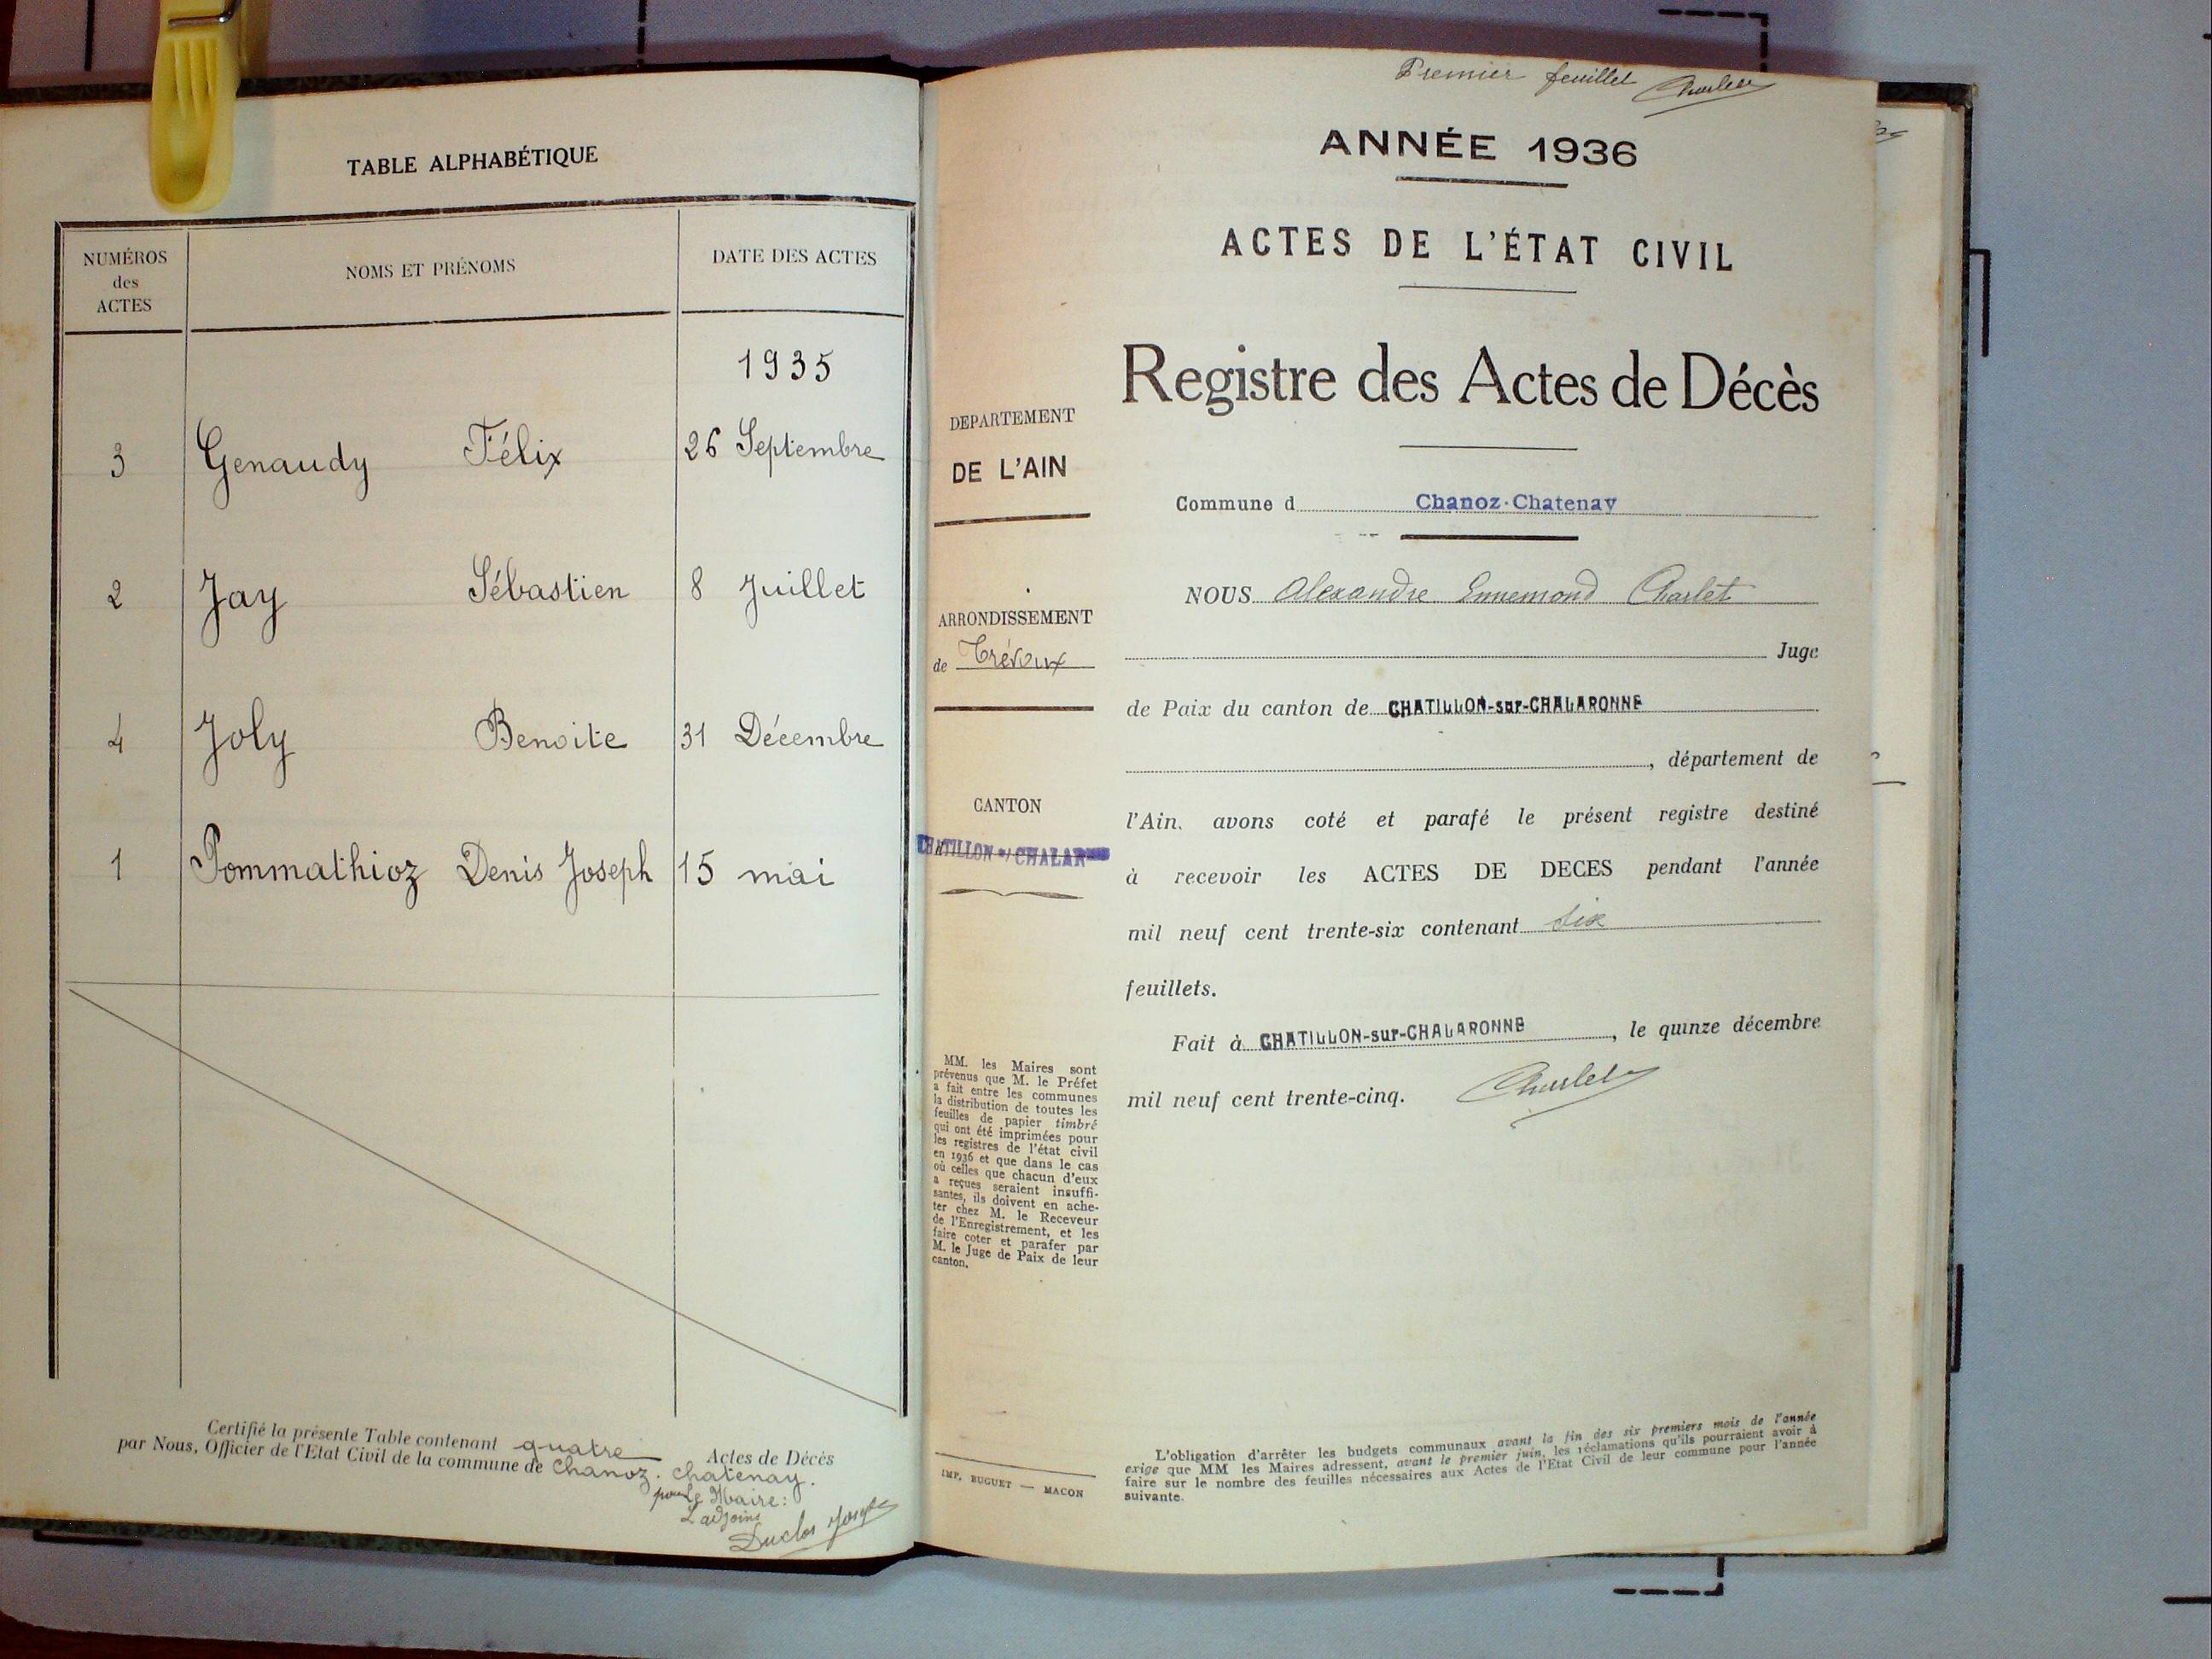 TABLE ALPHABÉTIQUE
NUMÉROS
des
ACTES
NOMS ET PRÉNOMS
DATE DES ACTES
1935
3 Genaudy Félix 26 Septembre
2 Jay Sébastien 8 Juillet
4 Joly Benoite 31 Décembre
1 Pommathioz Denis Joseph 15 mai
Certifié la présente Table contenant quatre Actes de Décès
par Nous, Officier de l'Etat Civil de la commune de Chanoz-Chatenay.
pour Le Maire:
L'adjoint
Duclos Joseph
Premier feuillet Charlet
ANNÉE 1936
ACTES DE L'ÉTAT CIVIL
Registre des Actes de Décès
DEPARTEMENT
DE L'AIN
ARRONDISSEMENT
de Trévoux
CANTON
CHATILLON s/ CHALAR
MM. les Maires sont
prévenus que M. le Préfet
a fait entre les communes
la distribution de toutes les
feuilles de papier timbré
qui ont été imprimées pour
les registres de l'état civil
en 1936 et que dans le cas
où celles que chacun d'eux
a reçues seraient insuffi-
santes, ils doivent en ache-
ter chez M. le Receveur
de l'Enregistrement, et les
faire coter et parafer par
M. le Juge de Paix de leur
canton.
IMP. BUGUET — MACON
Commune d Chanoz-Chatenay
NOUS Alexandre Ennemond Charlet
Juge
de Paix du canton de CHATILLON-sur-CHALARONNE
, département de
l'Ain, avons coté et parafé le présent registre destiné
à recevoir les ACTES DE DECES pendant l'année
mil neuf cent trente-six contenant six
feuillets.
Fait à CHATILLON-sur-CHALARONNE, le quinze décembre
mil neuf cent trente-cinq. Charlet
L'obligation d'arrêter les budgets communaux avant la fin des six premiers mois de l'année
exige que MM les Maires adressent, avant le premier juin, les réclamations qu'ils pourraient avoir à
faire sur le nombre des feuilles nécessaires aux Actes de l'Etat Civil de leur commune pour l'année
suivante.